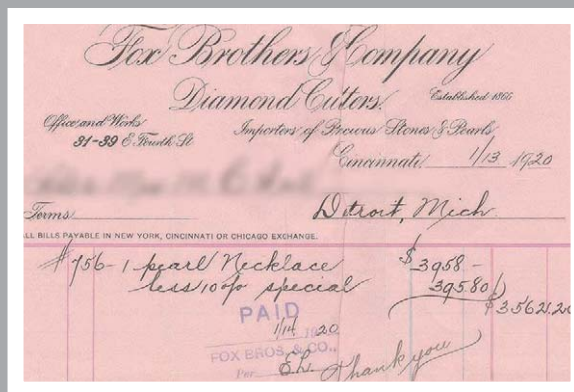 Fox Brothers & Company
Diamond Cutters.
Established 1866
Office and Works
31-39 E. Fourth St
Importers of Precious Stones & Pearls
Cincinnati 1/13 1920
Terms
Detroit, Mich
ALL BILLS PAYABLE IN NEW YORK, CINCINNATI OR CHICAGO EXCHANGE.
#756-1 pearl Necklace $3958-
less 10% special 395.80
$3562.20
PAID
1/14 1920
FOX BROS. & CO.,
Per EL
Thank you